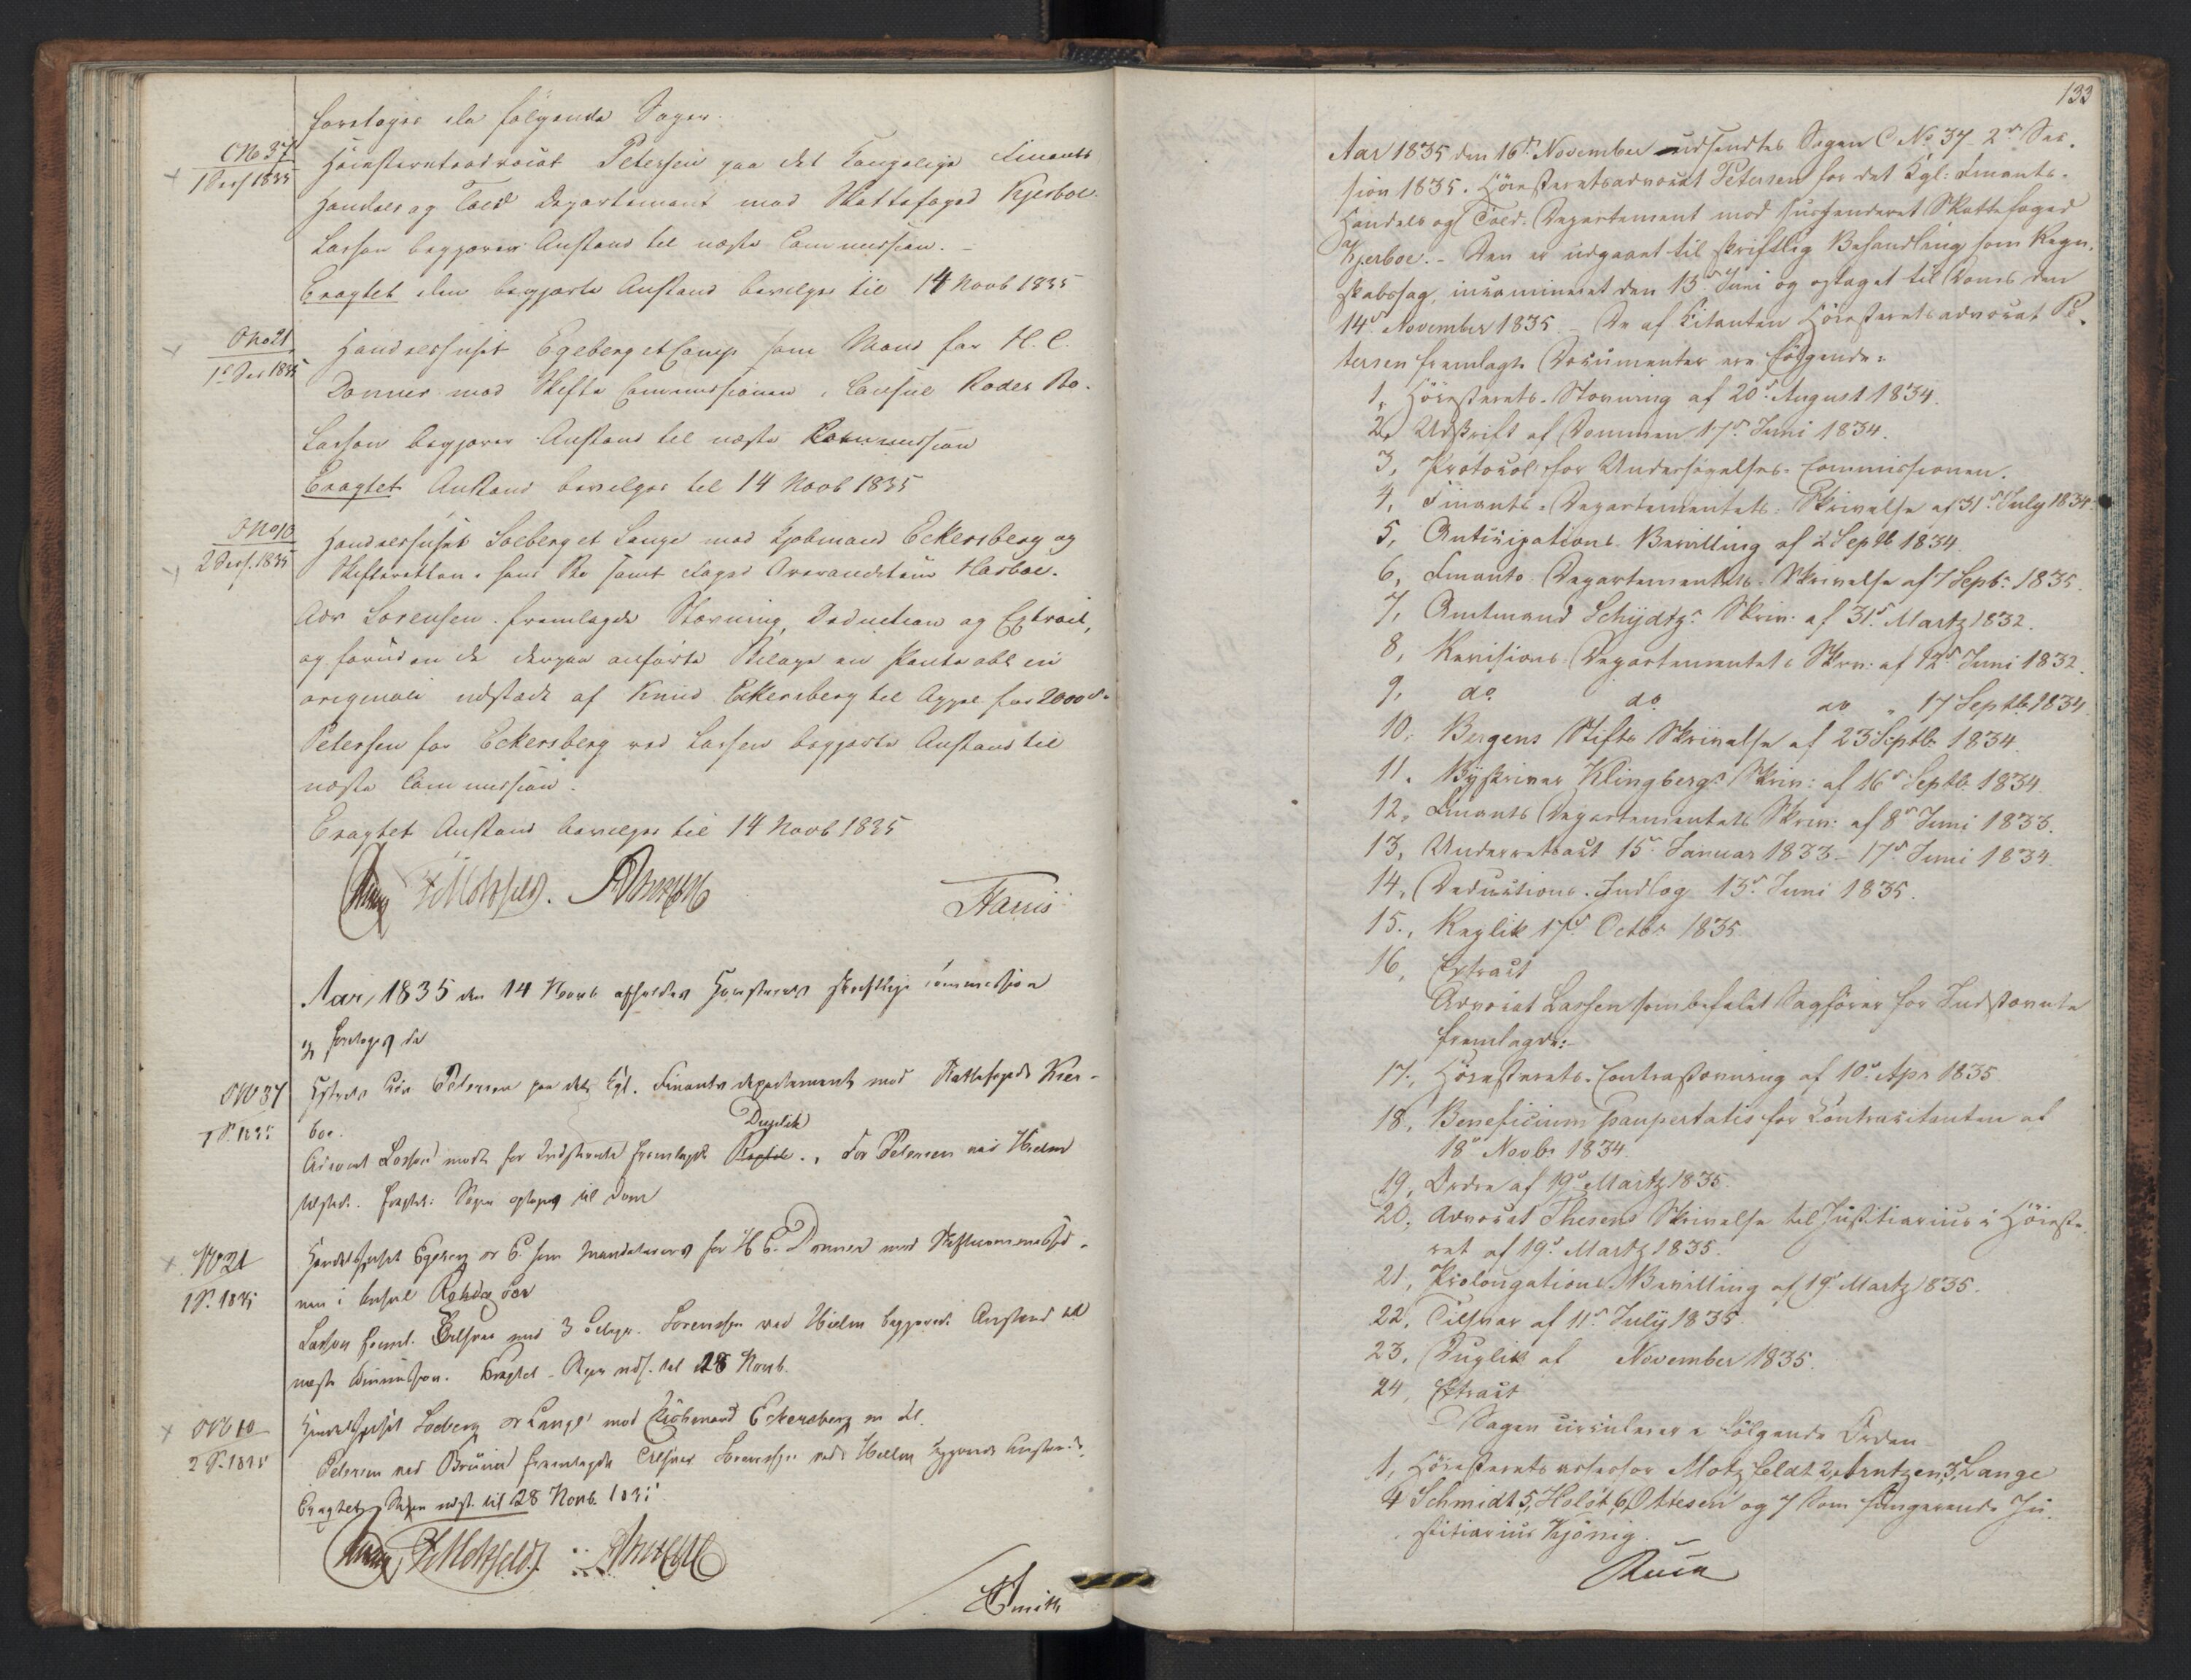 foretoges da følgende Sager.
C No 37
1 Sess 1835
Høiesteretsadvocat Petersen paa det Kongelige Finants
Handels og Told Departement mod Skattefoged Kjerboe.
Lassen begjærer Anstand til næste Commission. –
Eragtet den begjærte Anstand bevilges til 14 Novb 1835
C No 21
1 Ses 1835
Handelshuset Egeberg et Comp som Mand for H. C.
Donner mod Skifte Commissionen i Consul Rodes Bo.
Lassen begjærer Anstand til næste Commission
Eragtet Anstand bevilges til 14 Novb 1835
C No 10
2 Sess. 1835
Handelshuset Soeberg et Lange mod Kjøbmand Eckersberg og
Skifteretten i hans Bo samt Foged
Adv Sørensen fremlagde Stævning, Deduction og Extract,
og foruden de derpaa anførte Bilage en Pante obl in
originali udstædt af Knud Eckersberg til Appel for 2000
Petersen for Eckersberg ved Lassen begjærte Anstand til
næste Commission.
Eragtet Anstand bevilges til 14 Novb 1835
Motzfeldt.
Aar 1835 den 14 Novb afholdtes Høiesterets skriftlige Commission
og foretoges da
C No 37
1 S. 1835
Petersen paa det Kgl. Finants departements mod Skattefoged Kier-
boe.
Duplik
Advocat Lassen mødte for Indstævnte fremlagde Replik. For Petersen ved Hielm
tilstede. Eragtet: Sagen optages til Dom
No 21
1 S. 1835
Handelshuset Egeberg & C. som Mandatarius for H. C. Donner mod Skiftecommissio-
nen i Consul Rohdes Boe
Lassen freml. Tilsvar med 3 Bilage. Sørenssen ved Hielm begjærede Anstand til
næste Commission. Eragtet – Sagen uds. til 28 Novb.
C No 10
2 S. 1835
Handelshuset Soeberg & Lange mod Kjøbmand Eckersberg m fl.
Petersen ved Bruun fremlagde Tilsvar Sørenssen ved Hielm begjærede Anstand.
Eragtet, Sagen udst. til 28 Novb. 1835
Motzfeldt.
Smith
133
Aar 1835 den 16de November udsendtes Sagen C No 37 2den Ses-
sion 1835. Høiesteretsadvocat Petersen for det Kgl: Finants-
Handels og Told-Departement mod suspenderet Skattefoged
Kjerboe. – Den er udgaaet til skriftlig Behandling som Regn-
skabssag, incamineret den 13de Juni og optaget til Doms den
14de November 1835. – De af Citanten Høiesteretsadvocat Pe-
tersen fremlagte Documenter ere følgende:
1, Høiesterets-Stævning af 20de August 1834.
2, Udskrift af Dommen 17de Juni 1834.
3, Protocol for Undersøgelses-Commissionen.
4, Finants-Departementets Skrivelse af 31te July 1834.
5, Anticipations-Bevilling af 2 Septb 1834.
6, Finants Departementets Skrivelse af 7 Septbr 1835.
7, Amtmand Schydtz's Skriv: af 31te Martz 1832.
8, Revisions Departementets Skriv: af 12te Juni 1832.
9, do do do „ 17 Septbr 1834.
10, Bergens Stifts Skrivelse af 23 Septbr 1834.
11, Byskriver Klingbergs Skriv: af 16de Septbr 1834.
12, Finants Departementets Skriv: af 8de Juni 1833.
13, Underretsact 15de Januar 1833 – 17de Juni 1834.
14, Deductions-Indlæg 13de Juni 1835.
15., Replik 17de Octbr 1835.
16, Extract
Advocat Lassen som befalet Sagfører for Indstævnte
fremlagde:
17, Høiesterets-Contrastævning af 10de Apr 1835
18, Beneficium paupertatis for Contracitanten af
18de Novbr 1834.
19, Ordre af 19de Martz 1835.
20, Advocat Thesens Skrivelse til Justitiarius i Høieste-
ret af 19de Martz 1835.
21, Prolongations-Bevilling af 19de Martz 1835.
22, Tilsvar af 11te July 1835.
23, Duplik af November 1835.
24, Extract
Sagen circulerer i følgende Orden
1, Høiesteretsassessor Motzfeldt 2, Berntzen, 3, Lange
4 Schmidt 5, Holst, 6, Ottesen og 7 Som fungerende Ju-
stitiarius Kjønig.